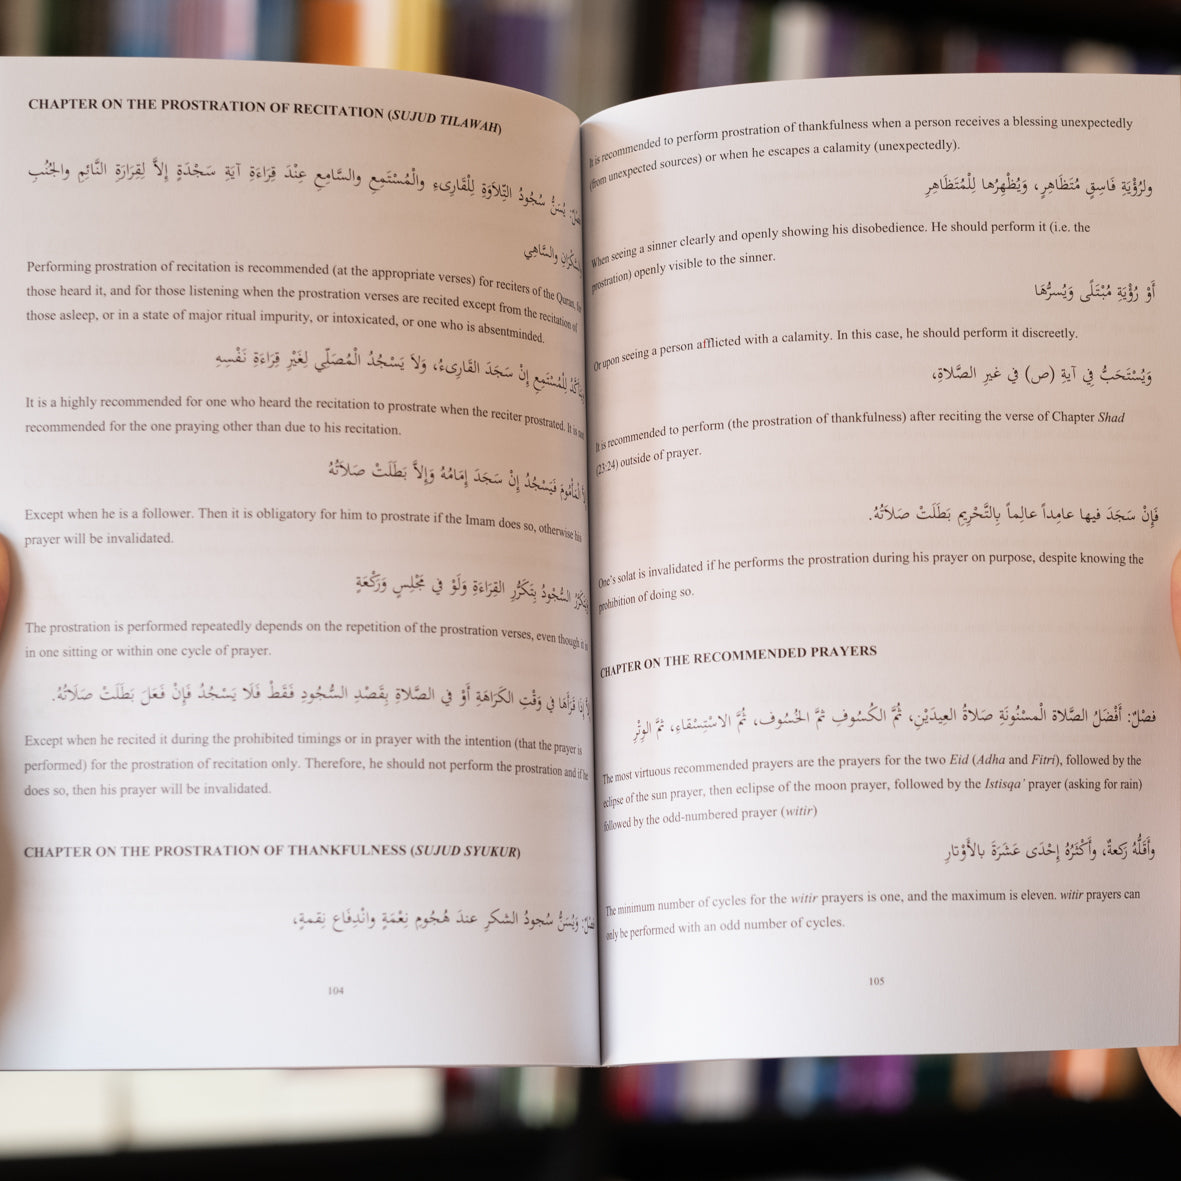 CHAPTER ON THE PROSTRATION OF RECITATION (SUJUD TILAWAH)
فصْلٌ: يُسَنُّ سُجُودُ التِّلاَوَةِ لِلْقَارِىءِ والْمُسْتَمِعِ والسَّامِعِ عِنْدَ قِرَاءَةِ آيَةِ سَجْدَةٍ إلاَّ لِقِرَارَةِ النَّائِمِ والجُنُبِ
والسَّكْرَانِ والسَّاهِي
Performing prostration of recitation is recommended (at the appropriate verses) for reciters of the Quran, for
those heard it, and for those listening when the prostration verses are recited except from the recitation of
those asleep, or in a state of major ritual impurity, or intoxicated, or one who is absentminded.
وَيَتَأَكَّدُ لِلْمُسْتَمِعِ إنْ سَجَدَ القَارِىءُ، وَلاَ يَسْجُدُ الْمُصَلِّي لِغَيْرِ قِرَاءَةِ نَفْسِهِ
It is a highly recommended for one who heard the recitation to prostrate when the reciter prostrated. It is not
recommended for the one praying other than due to his recitation.
إلاَّ الْمَأْمُومَ فَيَسْجُدُ إنْ سَجَدَ إمَامُهُ وَإلاَّ بَطَلَتْ صَلاَتُهُ
Except when he is a follower. Then it is obligatory for him to prostrate if the Imam does so, otherwise his
prayer will be invalidated.
وَيَتَكَرَّرُ السُّجُودُ بِتَكَرُّرِ القِرَاءَةِ وَلَوْ فِي مَجْلِسٍ وَرَكْعَةٍ
The prostration is performed repeatedly depends on the repetition of the prostration verses, even though it is
in one sitting or within one cycle of prayer.
إلاَّ إذَا قَرَأَهَا فِي وَقْتِ الكَرَاهَةِ أَوْ فِي الصَّلاةِ بِقَصْدِ السُّجُودِ فَقَطْ فَلَا يَسْجُدُ فَإِنْ فَعَلَ بَطَلَتْ صَلاَتُهُ.
Except when he recited it during the prohibited timings or in prayer with the intention (that the prayer is
performed) for the prostration of recitation only. Therefore, he should not perform the prostration and if he
does so, then his prayer will be invalidated.
CHAPTER ON THE PROSTRATION OF THANKFULNESS (SUJUD SYUKUR)
فصْلٌ: وَيُسَنُّ سُجودُ الشكرِ عندَ هُجُومِ نِعْمَةٍ وانْدِفَاعِ نِقمةٍ،
104
It is recommended to perform prostration of thankfulness when a person receives a blessing unexpectedly
(from unexpected sources) or when he escapes a calamity (unexpectedly).
ولرُؤْيَةِ فَاسِقٍ مُتَظَاهِرٍ، وَيُظْهِرُها لِلْمُتَظَاهِرِ
When seeing a sinner clearly and openly showing his disobedience. He should perform it (i.e. the
prostration) openly visible to the sinner.
أَوْ رُؤْيَةِ مُبْتَلًى وَيُسرُّهَا
Or upon seeing a person afflicted with a calamity. In this case, he should perform it discreetly.
وَيُسْتَحَبُّ فِي آيةِ (ص) في غيرِ الصَّلاةِ،
It is recommended to perform (the prostration of thankfulness) after reciting the verse of Chapter Shad
(23:24) outside of prayer.
فَإِنْ سَجَدَ فيها عامِداً عالِماً بِالتَّحْرِيمِ بَطَلَتْ صَلاَتُهُ.
One's solat is invalidated if he performs the prostration during his prayer on purpose, despite knowing the
prohibition of doing so.
CHAPTER ON THE RECOMMENDED PRAYERS
فصْلٌ: أَفْضَلُ الصَّلاة الْمسْنُونَةِ صَلاةُ العِيدَيْنِ، ثُمَّ الكُسُوفِ ثمَّ الخُسُوفِ، ثُمَّ الاسْتِسْقاءِ، ثمَّ الوِتْرِ
The most virtuous recommended prayers are the prayers for the two Eid (Adha and Fitri), followed by the
eclipse of the sun prayer, then eclipse of the moon prayer, followed by the Istisqa' prayer (asking for rain)
followed by the odd-numbered prayer (witir)
وأَقَلُّهُ رَكعةٌ، وأَكْثَرُهُ إحْدَى عَشَرَةَ بالأَوْتارِ
The minimum number of cycles for the witir prayers is one, and the maximum is eleven. witir prayers can
only be performed with an odd number of cycles.
105